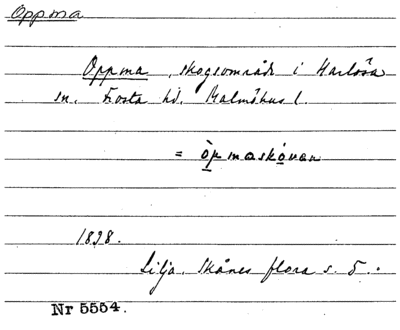 Oppma
Oppma, skogsområde i Harlösa
sn. Frosta hd. Malmöhus l.
= òpmaskóven
1838.
Lilja. Skånes flora s. 5.
Nr 5554.